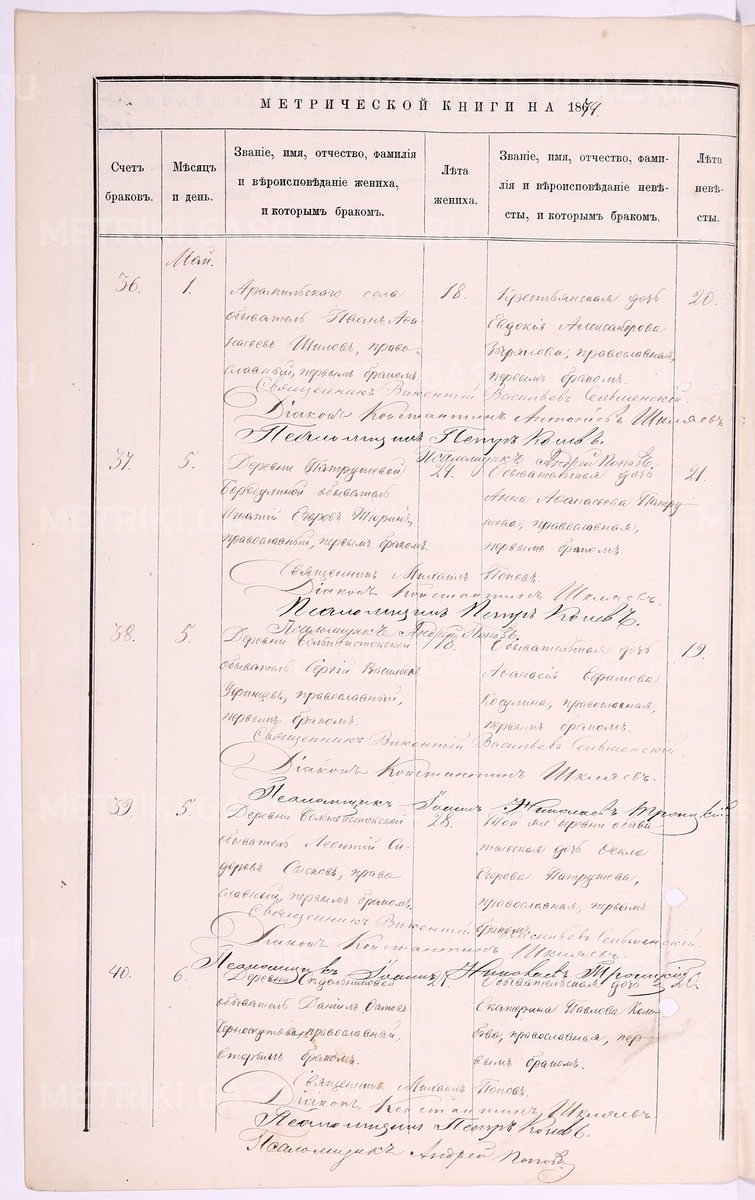 МЕТРИЧЕСКОЙ КНИГИ НА 1874.
Счетъ
браковъ.
Мѣсяцъ
и день.
Званіе, имя, отчество, фамилія
и вѣроисповѣданіе жениха,
и которымъ бракомъ.
Лѣта
жениха.
Званіе, имя, отчество, фами-
лія и вѣроисповѣданіе невѣ-
сты, и которымъ бракомъ.
Лѣта
невѣ-
сты.
Май.
36.
1.
Арамильскаго села
обыватель Павлъ Ава
касьевъ Шиловъ, право
славный, первымъ бракомъ.
18.
Крестьянская дочь
Евдокія Александрова
православная,
первымъ бракомъ.
20.
Священникъ Викентій Васильевъ Сельменскій.
Діаконъ Константинъ Антоніевъ Шкляевъ
Псаломщикъ Петръ
Псаломщикъ Андрей Поповъ.
37.
5.
Деревни Патрушевой
обыватель
Игнатій Егоровъ Тюринъ,
православный, первымъ бракомъ.
21.
Обывательская дочь
Анна Аѳанасьева Патру
шева, православная,
первымъ бракомъ.
21.
Священникъ Михаилъ Поповъ.
Діаконъ Константинъ Шкляевъ.
Псаломщикъ Петръ
Псаломщикъ Андрей Поповъ.
38.
5.
Деревни Большеистокской
обыватель Сергій Васильевъ
православный,
первымъ бракомъ.
18.
Обывательская дочь
Аѳанасія Ефимова
Косулина, православная,
первымъ бракомъ.
19.
Священникъ Викентій Васильевъ Сельменскій.
Діаконъ Константинъ Шкляевъ.
Псаломщикъ Іоаннъ Николаевъ Троицкій
39.
5.
Деревни Большеистокской
обыватель Леонтій Си
доровъ право
славный, первымъ бракомъ.
28.
Той же деревни обыва
тельская дочь Ѳекла
Егорова Патрушева,
православная, первымъ
бракомъ.
Священникъ Викентій Васильевъ Сельменскій.
Діаконъ Константинъ Шкляевъ.
Псаломщикъ Іоаннъ Николаевъ Троицкій
40.
6.
Деревни
обыватель Даніилъ
Черноскутовъ, православный,
вторымъ бракомъ.
Обывательская дочь
Екатерина Павлова
православная, пер
вымъ бракомъ.
26.
Священникъ Михаилъ Поповъ.
Діаконъ Константинъ Шкляевъ
Псаломщикъ Петръ
Псаломщикъ Андрей Поповъ